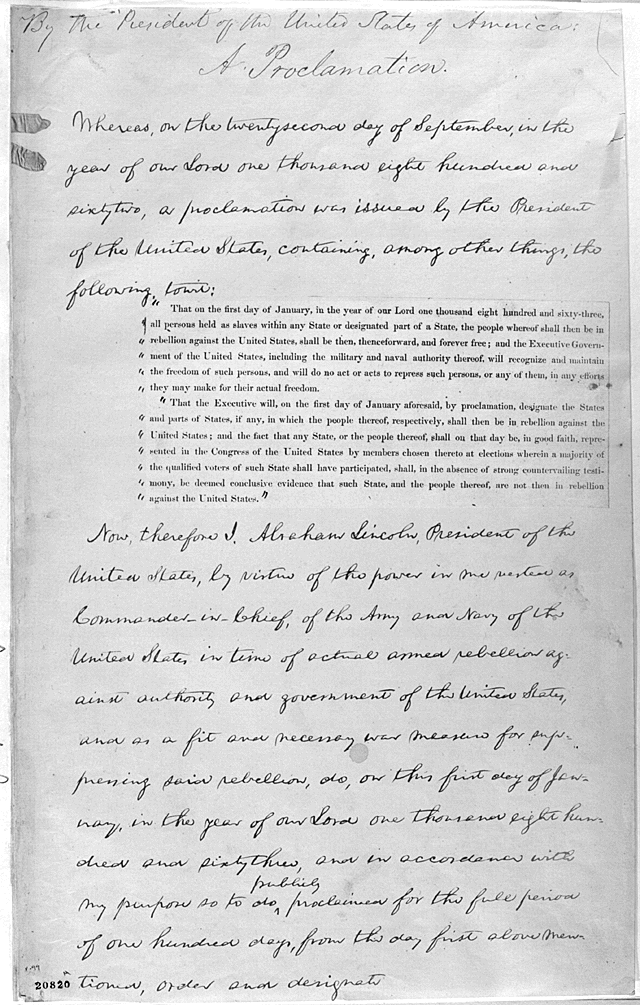 By the President of the United States of America:
A Proclamation.
Whereas, on the twentysecond day of September, in the
year of our Lord one thousand eight hundred and
sixtytwo, a proclamation was issued by the President
of the United States, containing, among other things, the
following, towit:
" That on the first day of January, in the year of our Lord one thousand eight hundred and sixty-three,
" all persons held as slaves within any State or designated part of a State, the people whereof shall then be in
" rebellion against the United States, shall be then, thenceforward, and forever free; and the Executive Govern-
" ment of the United States, including the military and naval authority thereof, will recognize and maintain
" the freedom of such persons, and will do no act or acts to repress such persons, or any of them, in any efforts
" they may make for their actual freedom.
" That the Executive will, on the first day of January aforesaid, by proclamation, designate the States
" and parts of States, if any, in which the people thereof, respectively, shall then be in rebellion against the
" United States; and the fact that any State, or the people thereof, shall on that day be, in good faith, repre-
" sented in the Congress of the United States by members chosen thereto at elections wherein a majority of
" the qualified voters of such State shall have participated, shall, in the absence of strong countervailing testi-
" mony, be deemed conclusive evidence that such State, and the people thereof, are not then in rebellion
" against the United States."
Now, therefore I, Abraham Lincoln, President of the
United States, by virtue of the power in me vested as
Commander-in-Chief, of the Army and Navy of the
United States in time of actual armed rebellion ag-
ainst authority and government of the United States,
and as a fit and necessary war measure for sup-
pressing said rebellion, do, on this first day of Jan-
uary, in the year of our Lord one thousand eight hun-
dred and sixty three, and in accordance with
publicly
my purpose so to do, proclaimed for the full period
of one hundred days, from the day first above men-
tioned, order and designate
20820